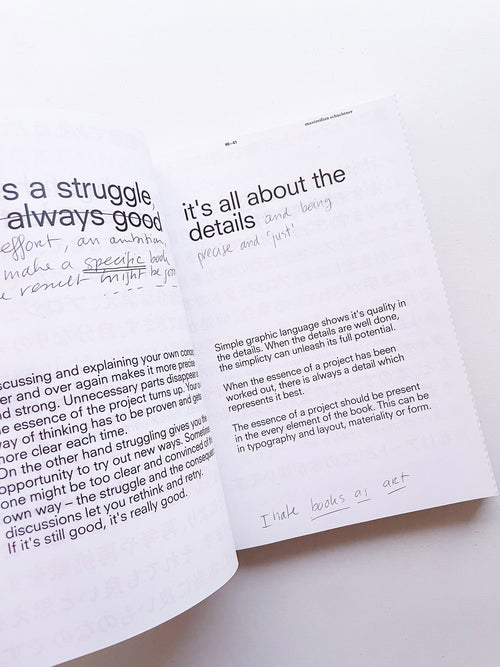 s a struggle,
always good
effort, an ambition,
make a specific book
e result might be
scussing and explaining your own conce
er and over again makes it more precise
nd strong. Unnecessary parts disappear
he essence of the project turns up. Your
way of thinking has to be proven and gets
more clear each time.
On the other hand struggling gives you the
opportunity to try out new ways. Sometimes
one might be too clear and convinced of
own way – the struggle and the consequ
discussions let you rethink and retry.
If it's still good, it's really good.
40–41
maximilian schachtner
it's all about the
details and being
precise and 'just'
Simple graphic language shows it's quality in
the details. When the details are well done,
the simplicty can unleash its full potential.
When the essence of a project has been
worked out, there is always a detail which
represents it best.
The essence of a project should be present
in the every element of the book. This can be
in typography and layout, materiality or form.
I hate books as art